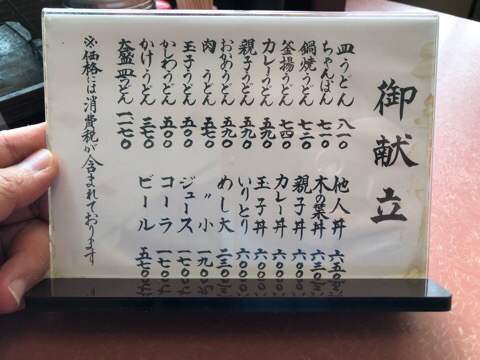 御献立
皿うどん 八一〇
ちゃんぽん 七一〇
鍋焼うどん 七三〇
釜揚うどん 七四〇
カレーうどん 五九〇
親子うどん 五九〇
おかめうどん 五九〇
肉うどん 五七〇
玉子うどん 五〇〇
かやわうどん 五〇〇
かけうどん 三七〇
大盛皿うどん 一一二〇
他人丼 六五〇
木の葉丼 六三〇
親子丼 六〇〇
カレー丼 六〇〇
玉子丼 六〇〇
いりとり 六〇〇
めし大 二三〇
〃小 一九〇
ジュース 一七〇
コーラ 一七〇
ビール 五七〇
※価格には消費税が含まれております